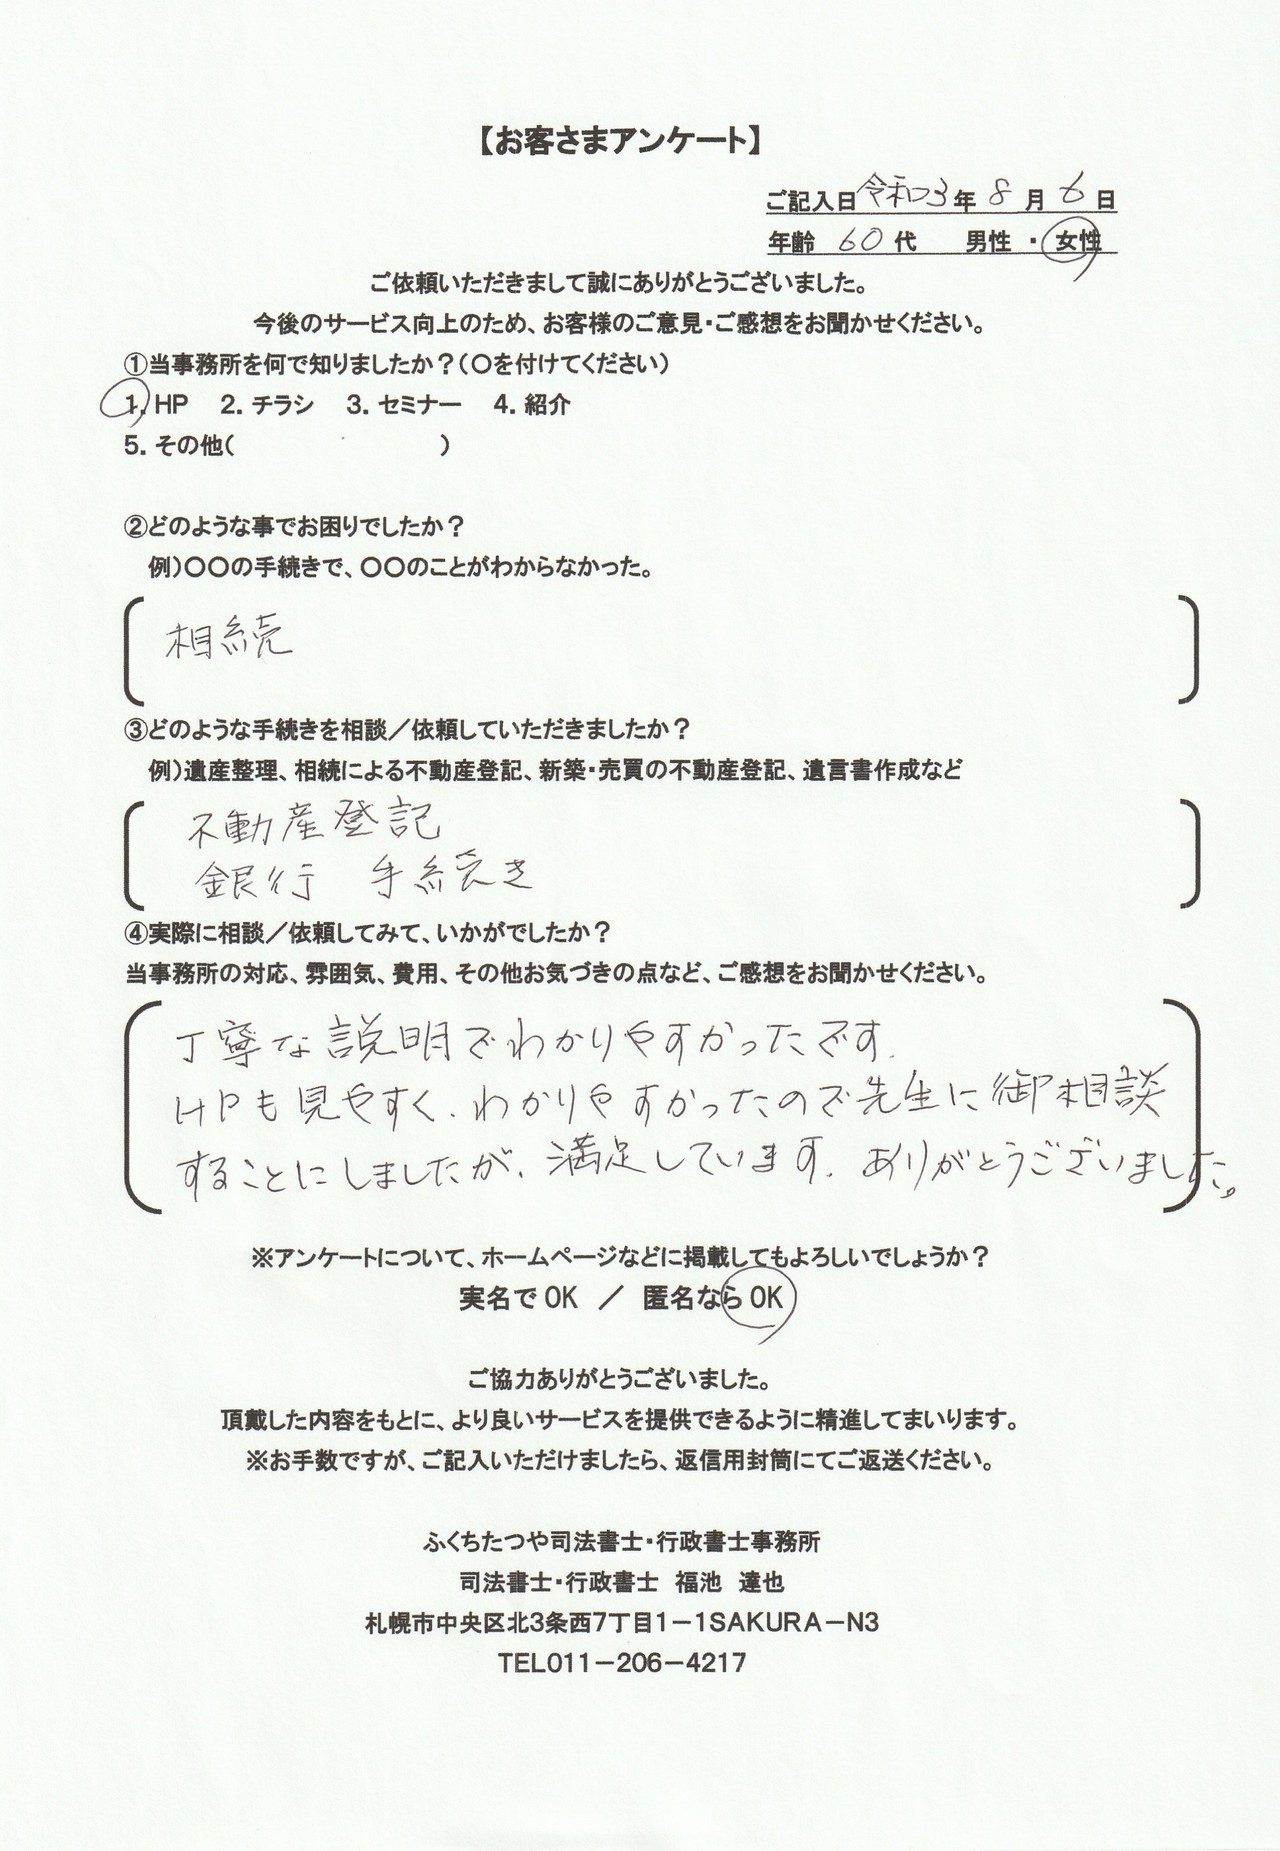 【お客さまアンケート】
ご記入日 令和3年 8月 6日
年齢 60代 男性 ・ 女性
ご依頼いただきまして誠にありがとうございました。
今後のサービス向上のため、お客様のご意見・ご感想をお聞かせください。
①当事務所を何で知りましたか？（〇を付けてください）
1. HP 2. チラシ 3. セミナー 4. 紹介
5. その他（ ）
②どのような事でお困りでしたか？
例）〇〇の手続きで、〇〇のことがわからなかった。
相続
③どのような手続きを相談／依頼していただきましたか？
例）遺産整理、相続による不動産登記、新築・売買の不動産登記、遺言書作成など
不動産登記
銀行 手続き
④実際に相談／依頼してみて、いかがでしたか？
当事務所の対応、雰囲気、費用、その他お気づきの点など、ご感想をお聞かせください。
丁寧な説明でわかりやすかったです.
HPも見やすく.わかりやすかったので先生に御相談
することにしましたが.満足しています.ありがとうございました。
※アンケートについて、ホームページなどに掲載してもよろしいでしょうか？
実名でOK ／ 匿名ならOK
ご協力ありがとうございました。
頂戴した内容をもとに、より良いサービスを提供できるように精進してまいります。
※お手数ですが、ご記入いただけましたら、返信用封筒にてご返送ください。
ふくちたつや司法書士・行政書士事務所
司法書士・行政書士 福池 達也
札幌市中央区北3条西7丁目1－1SAKURA－N3
TEL011－206－4217